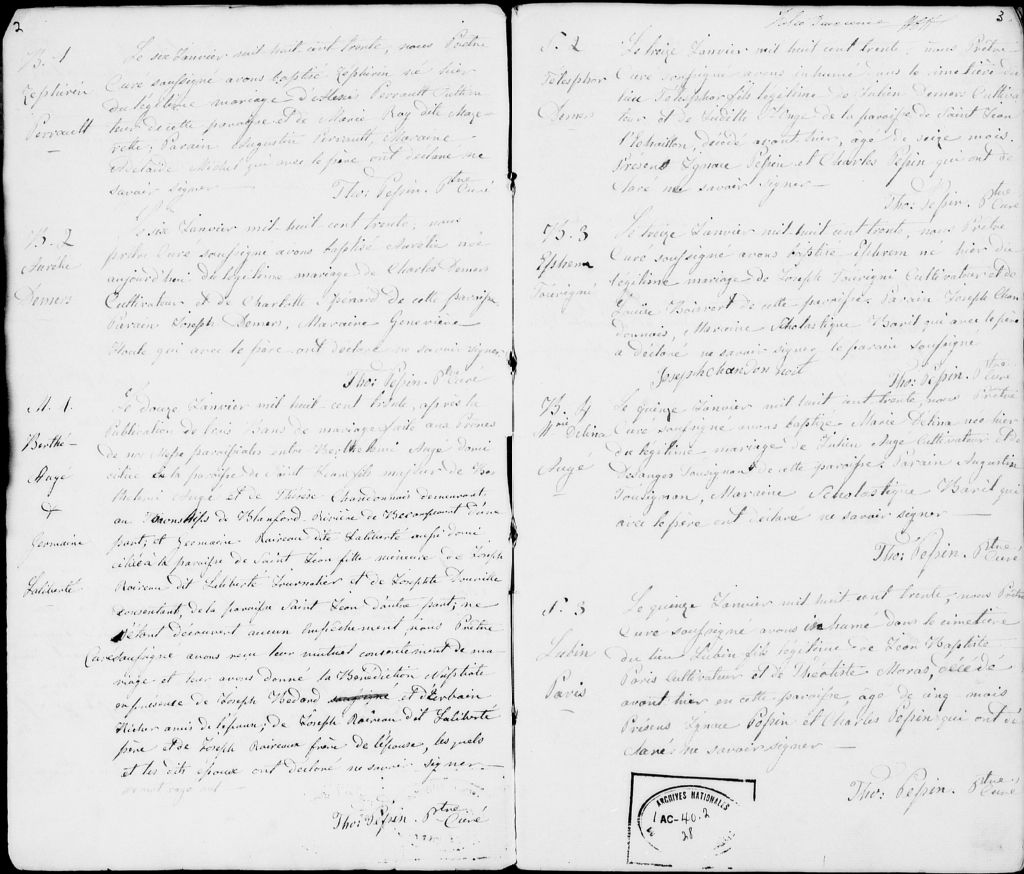 2
B. 1
Zephirin
Perrault
Le six Janvier mil huit cent trente, nous Prêtre
Curé soussigné avons baptisé Zephirin né hier
du légitime mariage d'Alexis Perrault Cultiva
teur de cette paroisse et de Marie Roy dite
Parain Augustin Perrault, Maraine
Adelaïde Michel qui avec le père ont déclaré ne
savoir signer —
Tho: Pepin. Ptre Curé
B. 2
Aurélie
Demers
Le six Janvier mil huit cent trente, nous
prêtre Curé soussigné avons baptisé Aurélie née
aujourd'hui du légitime mariage de Charles Demers
Cultivateur et de Charlotte Spénard de cette paroisse
Parain Joseph Demers, Maraine Geneviève
qui avec le père ont déclaré ne savoir signer
Tho: Pepin. Ptre Curé
M. 1.
Berthé-
Augé
&
Germaine
Laliberté
Le douze Janvier mil huit cent trente, après la
Publication de trois Bans de mariage faite aux Prônes
de nos Messes paroissiales entre Berthelemi Augé domi
cilié en la paroisse de Saint Jean fils majeur de Ber
thelemi Augé et de Thérèse Chandonnais demeurant
au Townships de Blanford Rivière de Becancourt d'une
part; et Germaine Raireau dite Laliberté aussi domi
ciliée à la paroisse de Saint Jean fille mineure de Joseph
Raireau dit Laliberté Journalier et de Josephte Douville
consentant, de la paroisse Saint Jean d'autre part; ne
s'étant découvert aucun empêchement, nous Prêtre
Curé soussigné avons reçu leur mutuel consentement de ma
riage et leur avons donné la Bénédiction Nuptiale
en présence de Joseph Bedard et d'Urbain
Richer amis de l'époux; de Joseph Raireau dit Laliberté
père et de Joseph Raireaux frère de l'épouse, lesquels
et les dits époux ont déclaré ne savoir signer.—
Tho: Pepin. Ptre Curé
3
S. 2
Telesphor
Demers
Le treize Janvier mil huit cent trente, nous Prêtre
Curé soussigné avons inhumé dans le cimetière du
lieu Telesphor fils légitime de Julien Demers Cultiva
teur et de Juditte de la paroisse de Saint Jean
décédé avant hier, agé de seize mois.
Présens Ignace Pepin et Charles Pepin qui ont dé
claré ne savoir signer —
Tho: Pepin. Ptre Curé
B. 3
Ephrem
Tourigné
Le treize Janvier mil huit cent trente, nous Prêtre
Curé soussigné avons baptisé Ephrem né hier du
légitime mariage de Joseph Tourigni Cultivateur et de
Louise Boisvert de cette paroisse. Parain Joseph Chan
donnais, Maraine Scholastique Baril qui avec le père
a déclaré ne savoir signer, le parain soussigné
Joseph Chandonnoit
Tho: Pepin. Ptre Curé
B. 4
Mrie Delina
Augé
Le quinze Janvier mil huit cent trente, nous Prêtre
Curé soussigné avons baptisé Marie Delina née hier
du légitime mariage de Lubin Augé Cultivateur et de
Desanges Tousignant de cette paroisse. Parain Augustin
Tousignan, Maraine Scholastique Baril qui
avec le père ont déclaré ne savoir signer —
Tho: Pepin. Ptre Curé
S. 3
Lubin
Paris
Le quinze Janvier mil huit cent trente, nous Prêtre
Curé soussigné avons inhumé dans le cimetière
du lieu Lubin fils légitime de Jean Baptiste
Paris Cultivateur et de Théotiste Moras, décédé
avant hier en cette paroisse, agé de cinq mois
Présens Ignace Pepin et Charles Pepin qui ont dé
claré ne savoir signer —
Tho: Pepin. Ptre Curé
ARCHIVES NATIONALES
AC-40.2
28